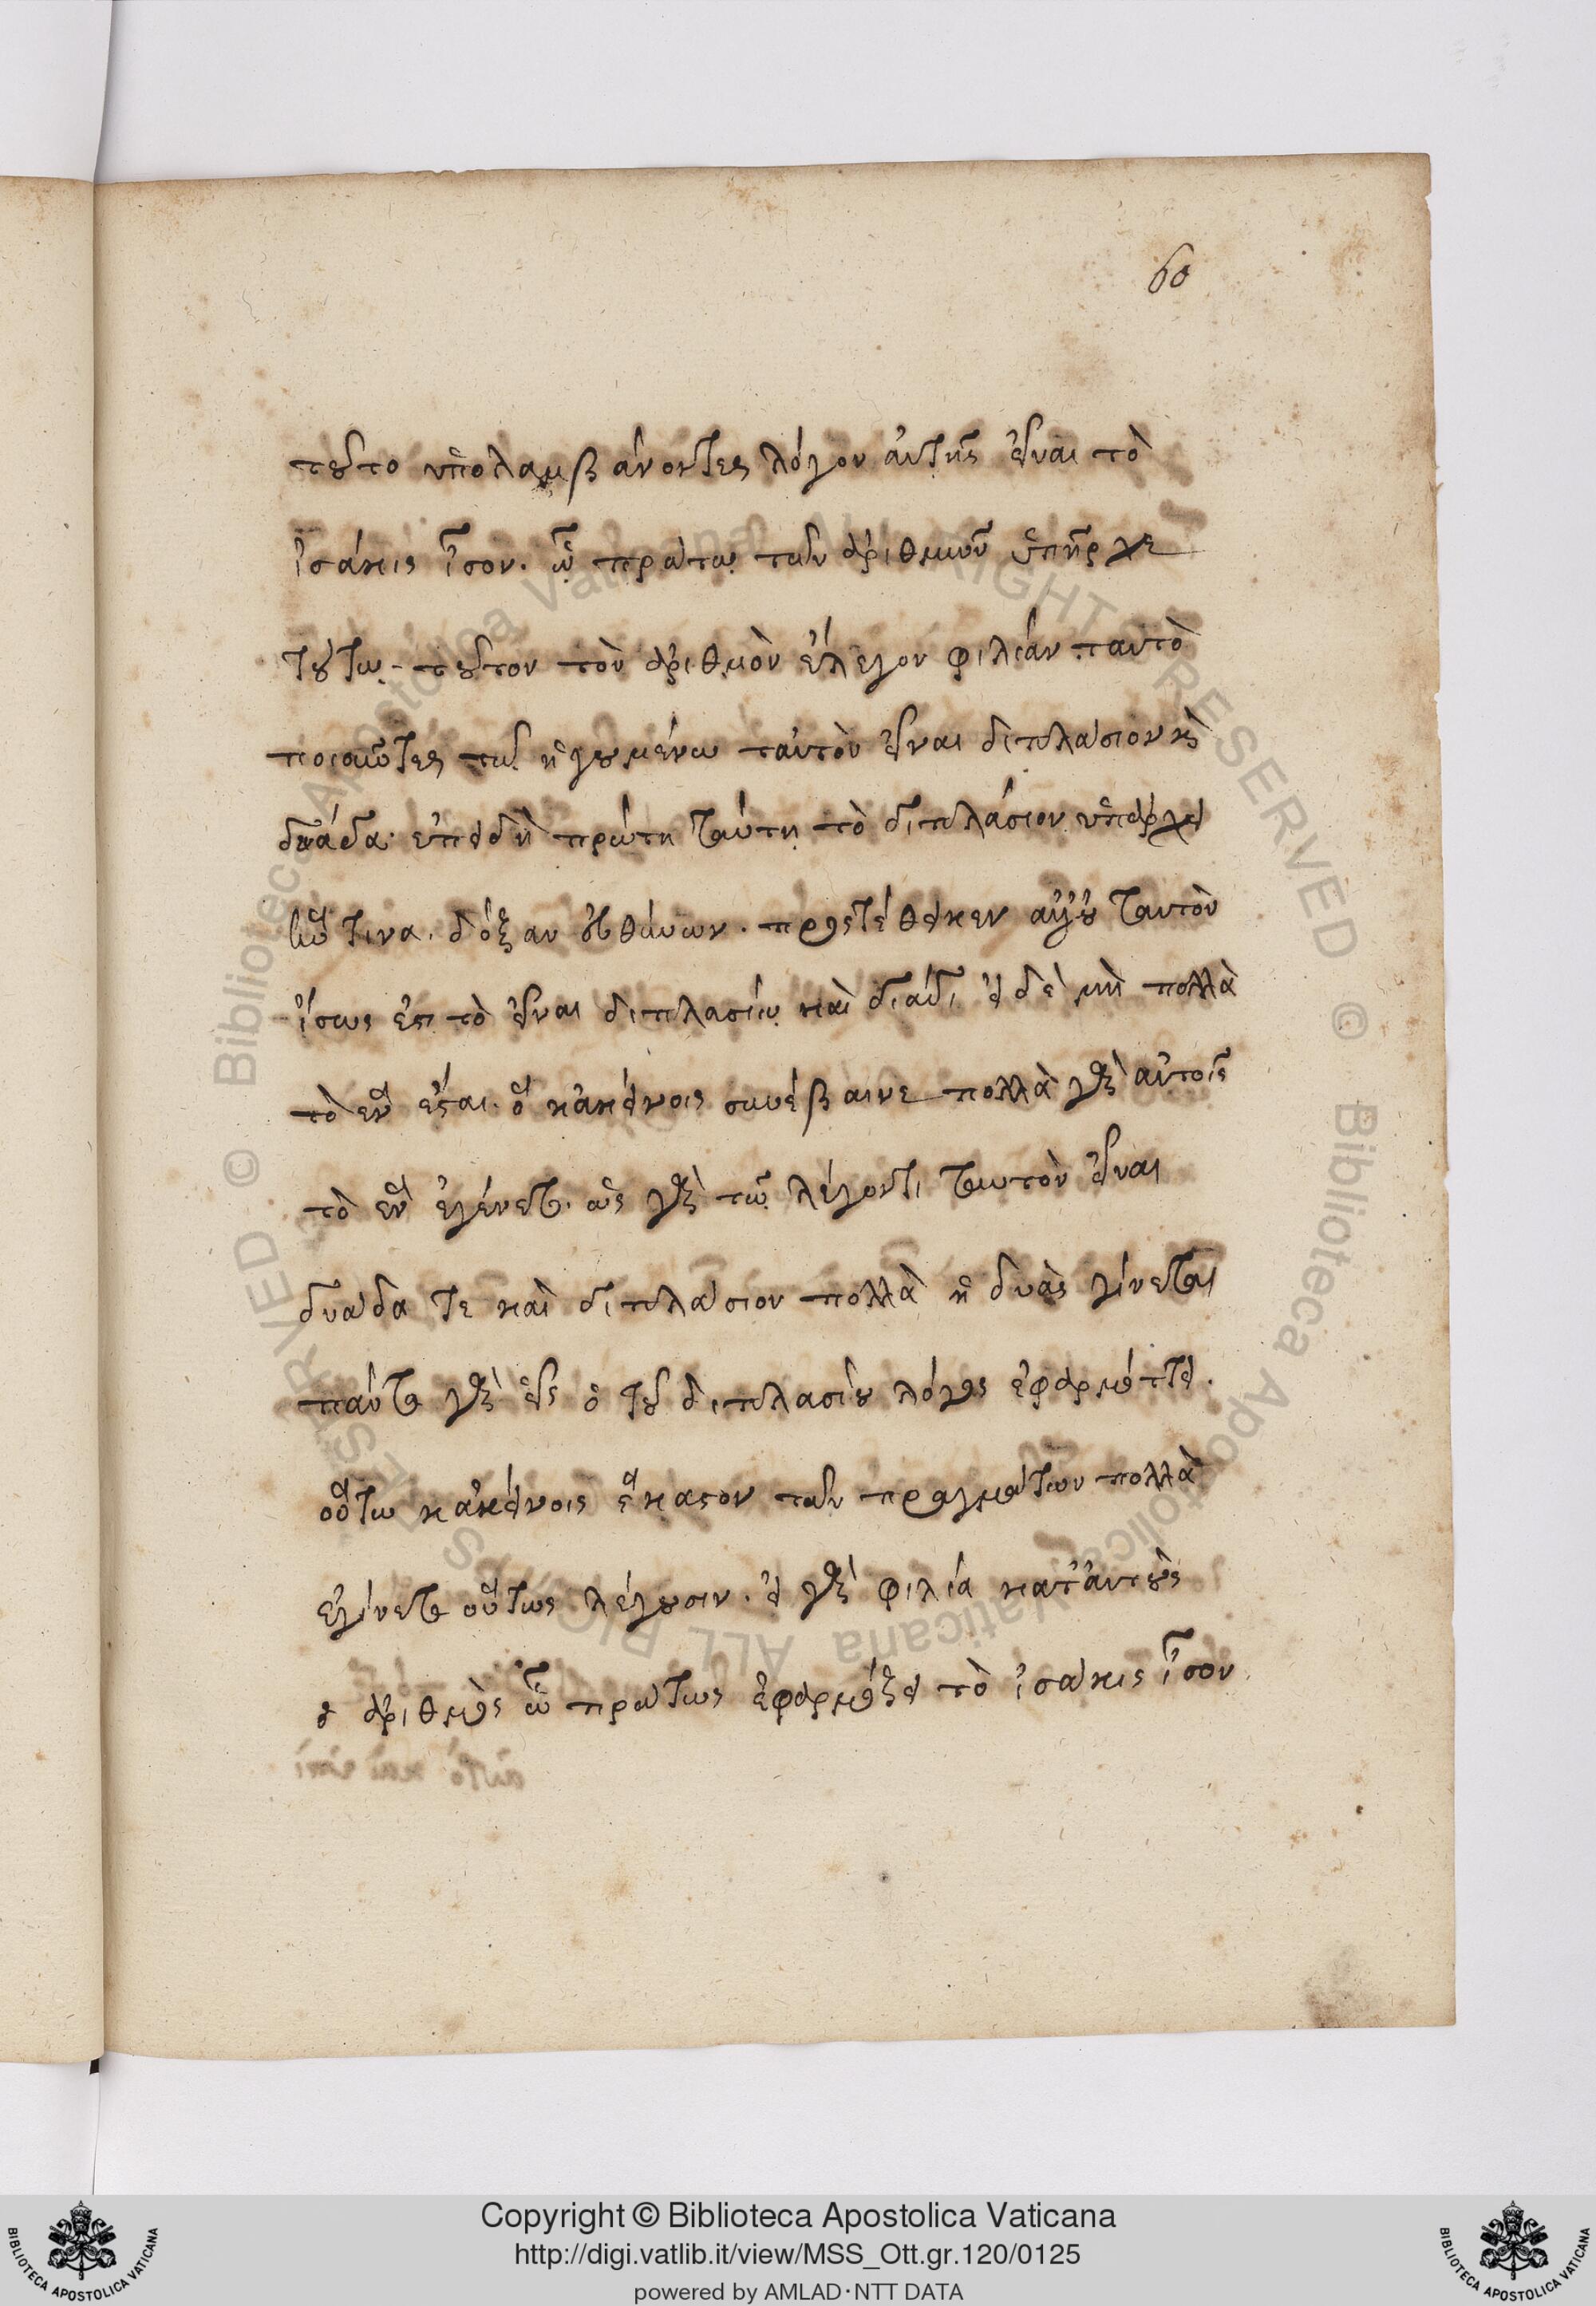 60
τοῦτο ὑπολαμβάνοντες λόγον αὐτῆς εἶναι τὸ
ἰσάκις ἴσον. ᾧ πρώτῳ τῶν ἀριθμῶν ὑπῆρχε
τούτῳ. τοῦτον τὸν ἀριθμὸν ἔλεγον φιλίαν ταυτὸ
ποιοῦντες τῷ ἡγουμένῳ ταὐτὸν εἶναι διπλάσιον καὶ
δυάδα. ἐπειδὴ πρώτῃ ταύτῃ τὸ διπλάσιον ὑπάρχει
ἥντινα δόξαν εὐθύνων. προστέθεικεν αὐτοῦ ταυτὸν
ἴσως ἐστὶ τὸ εἶναι διπλασίῳ καὶ δυάδι, εἰ δὲ μὴ πολλὰ
τὸ ἓν ἔσται. ὃ κἀκείνοις συνέβαινε πολλὰ γὰρ αὐτοῖς
τὸ ἓν ἐγένετο. ὡς γὰρ τῷ λέγοντι ταυτὸν εἶναι
δυάδα τε καὶ διπλάσιον πολλὰ ἡ δυὰς γίνεται
πάντα γὰρ εἷς ὁ τοῦ διπλασίου λόγος ἐφαρμόττει.
οὕτω κἀκείνοις ἕκαστον τῶν πραγμάτων πολλὰ
ἐγίνετο οὕτως λέγουσιν. εἰ γὰρ φιλία κατ' αὐτοὺς
ὁ ἀριθμὸς ᾧ πρώτως ἐφαρμόξει τὸ ἰσάκις ἴσον
Copyright © Biblioteca Apostolica Vaticana
http://digi.vatlib.it/view/MSS_Ott.gr.120/0125
powered by AMLAD·NTT DATA